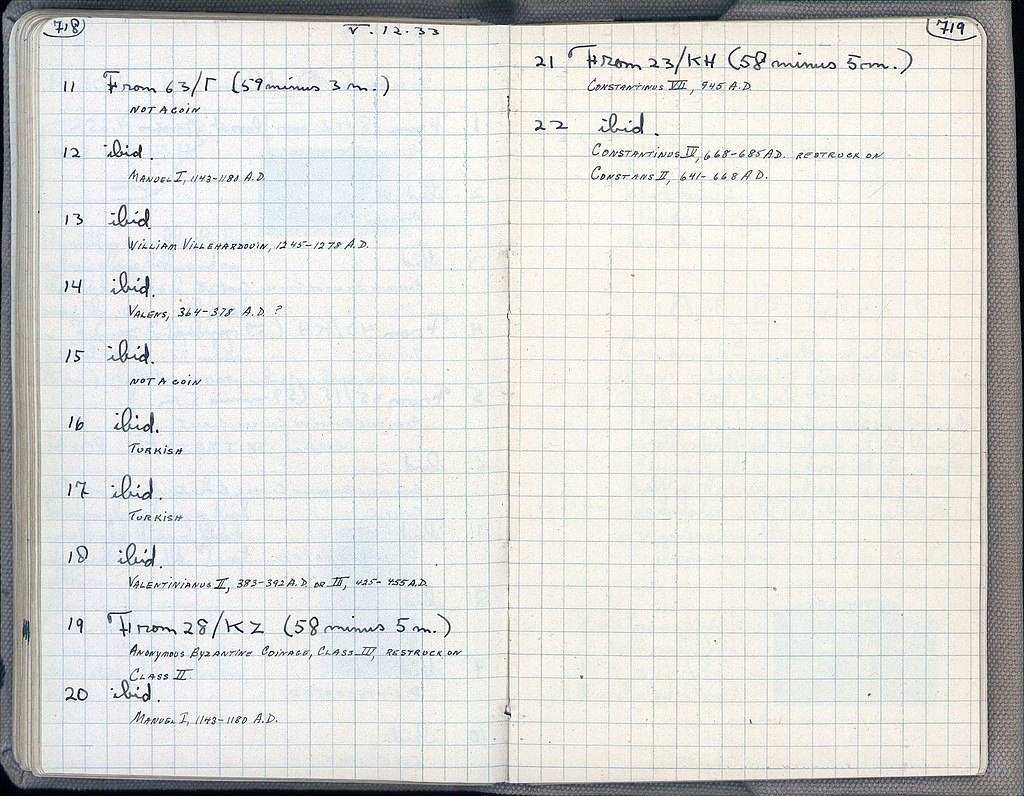 718
V.12.33
11 From 63/Γ (59 minus 3 m.)
NOT A COIN
12 ibid.
MANUEL I, 1143-1180 A.D
13 ibid
WILLIAM VILLEHARDOUIN, 1245-1278 A.D.
14 ibid.
VALENS, 364-378 A.D. ?
15 ibid.
NOT A COIN
16 ibid.
TURKISH
17 ibid.
TURKISH
18 ibid.
VALENTINIANUS II, 383-392 A.D. OR III, 425-455 A.D.
19 From 28/KZ (58 minus 5 m.)
ANONYMOUS BYZANTINE COINAGE, CLASS IV, RESTRUCK ON
CLASS II
20 ibid.
MANUEL I, 1143-1180 A.D.
719
21 From 23/KH (58 minus 5 m.)
CONSTANTINUS VII, 945 A.D.
22 ibid.
CONSTANTINUS IV, 668-685 A.D. RESTRUCK ON
CONSTANS II, 641-668 A.D.